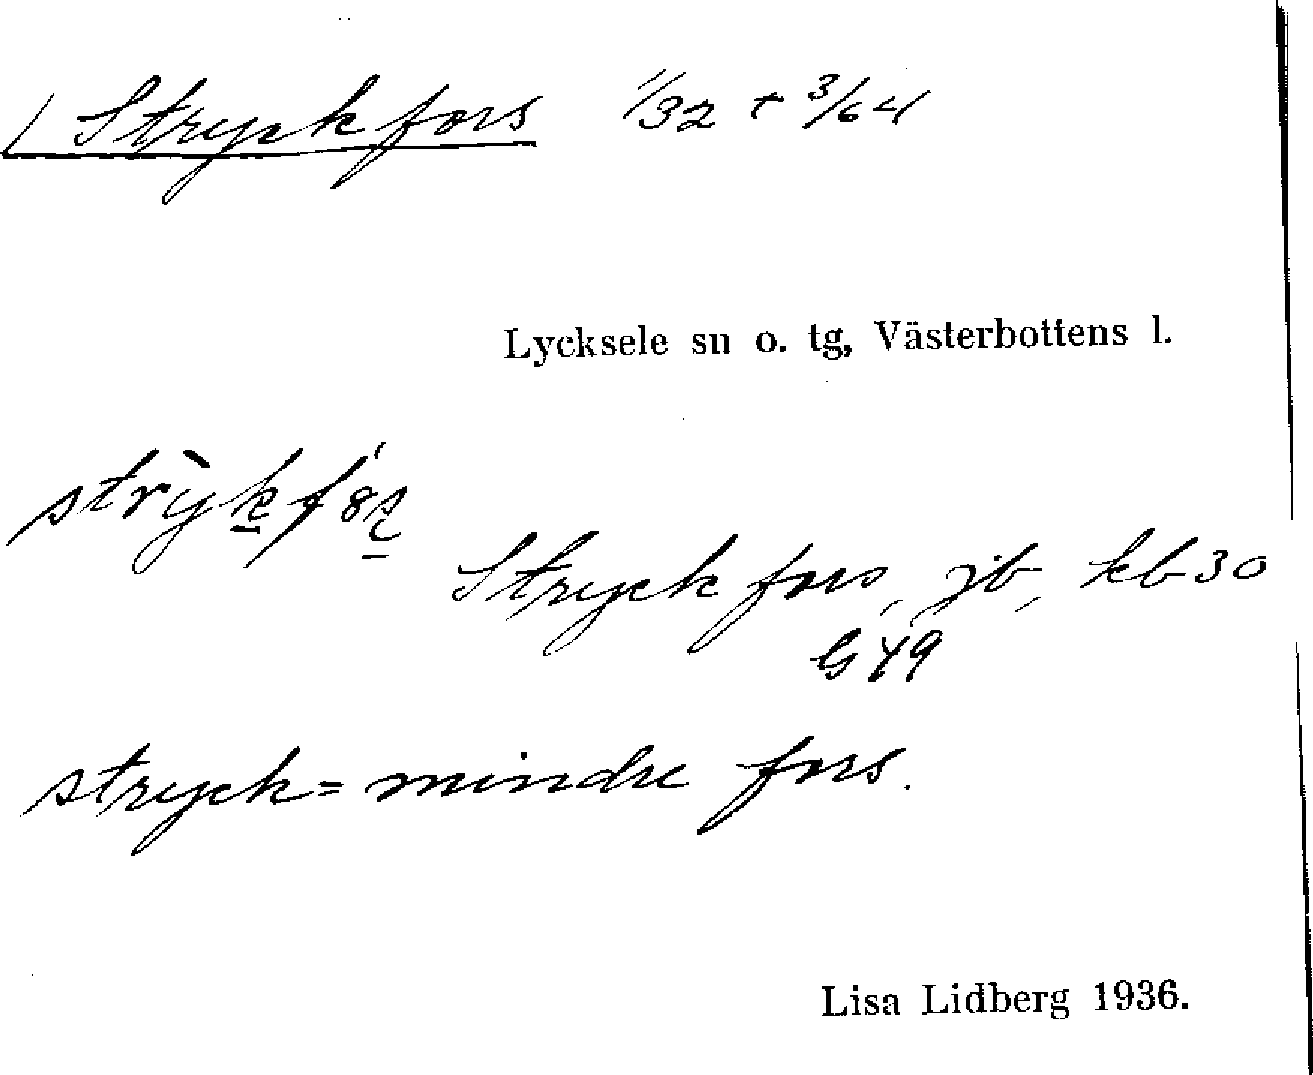 Stryckfors 1/32 + 3/64
Lycksele sn o. tg, Västerbottens l.
Stryckfors, jb, kb 30
G 49
stryck = mindre fors.
Lisa Lidberg 1936.